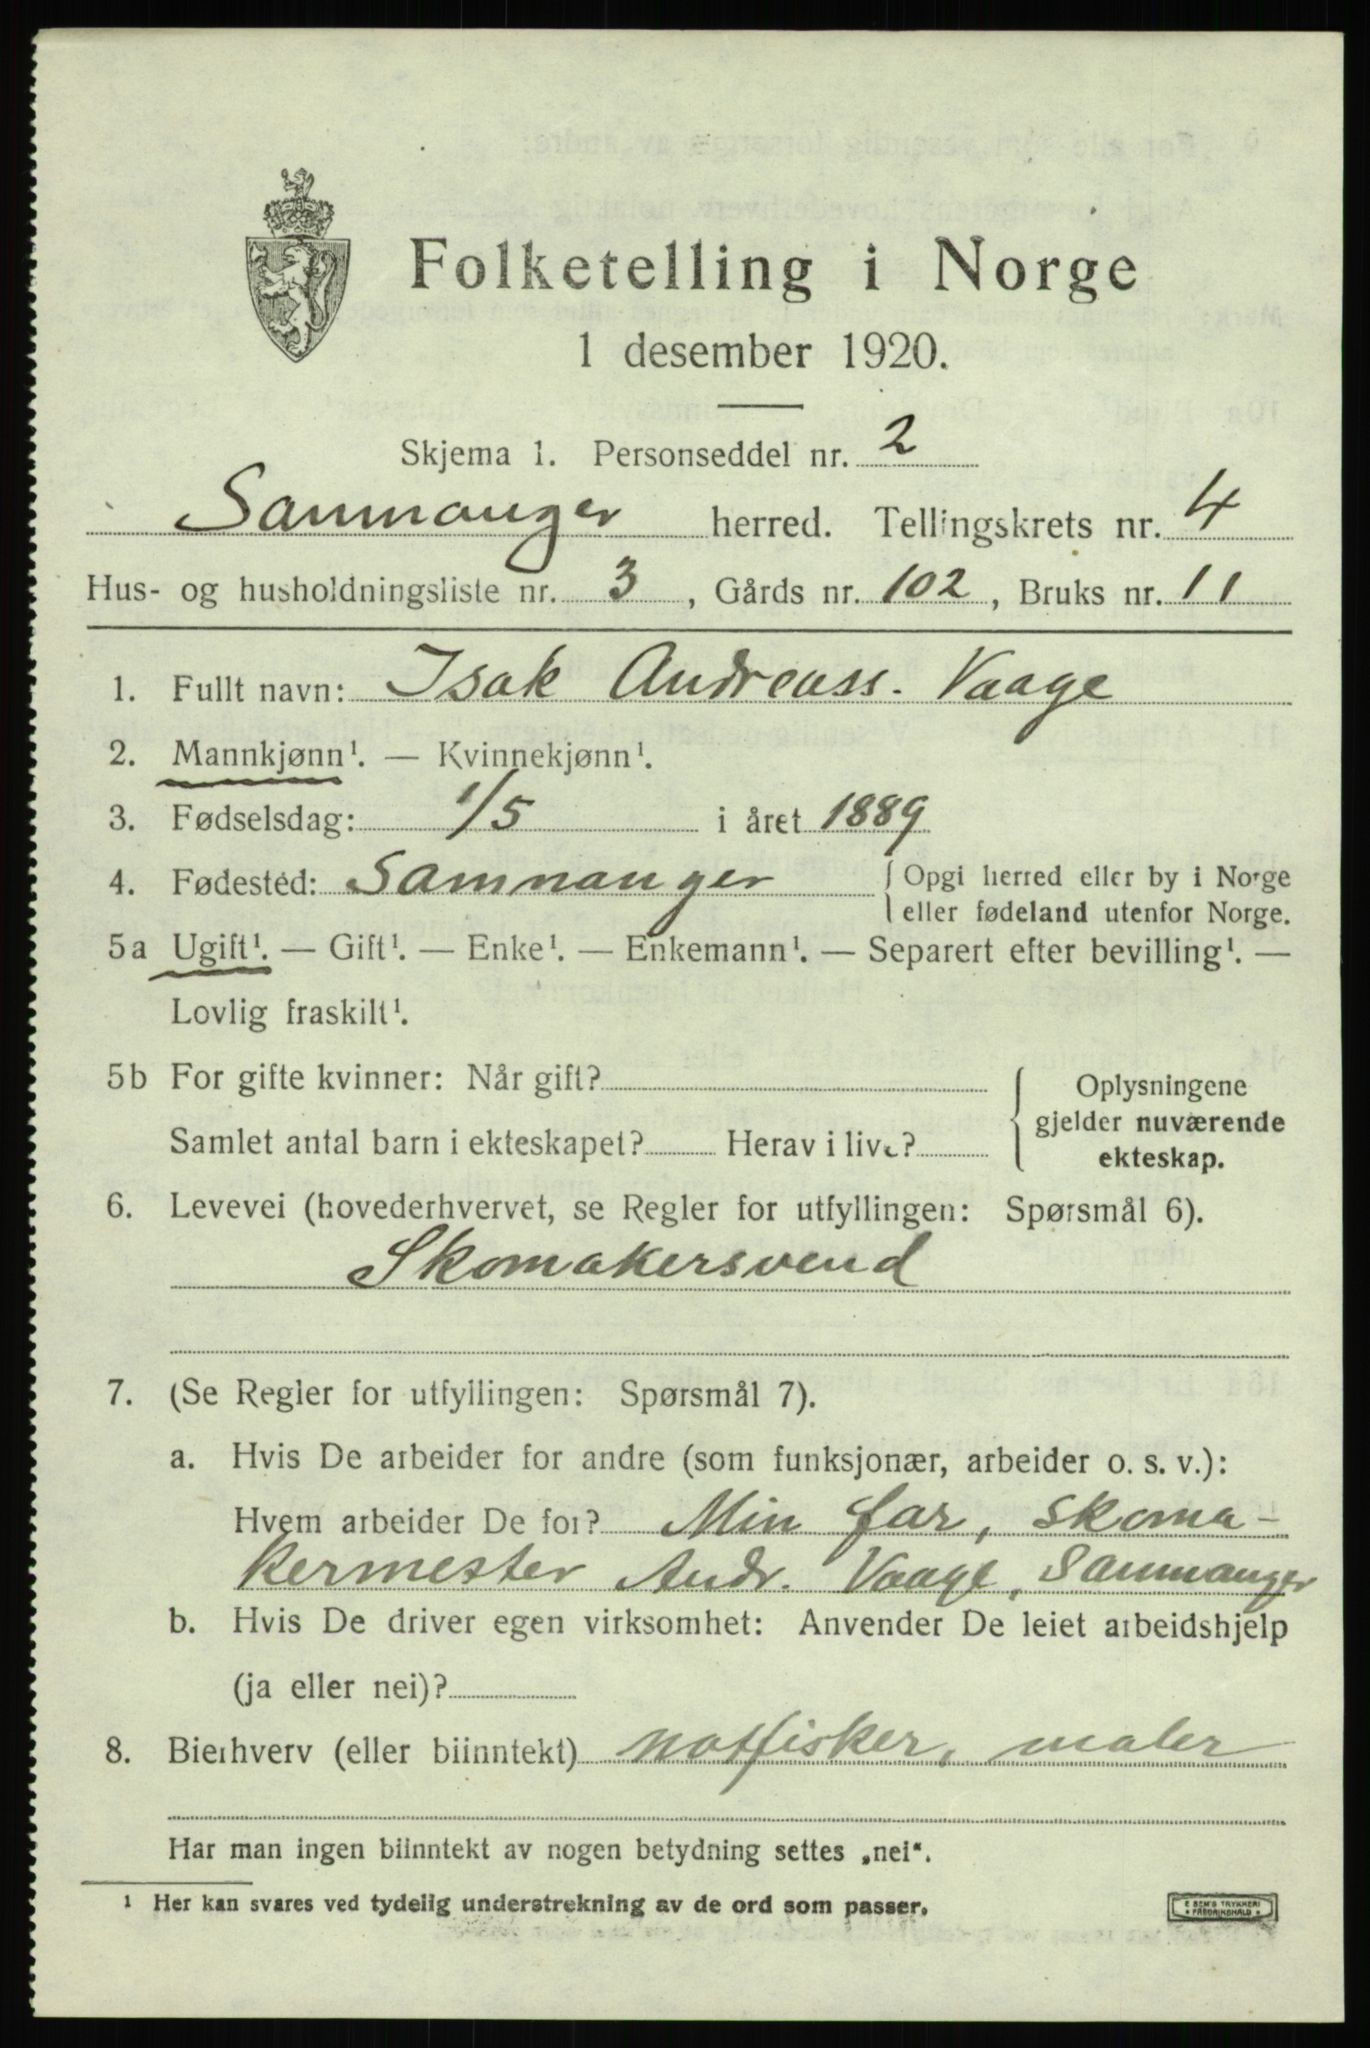 Folketelling i Norge
1 desember 1920.
Skjema 1. Personseddel nr. 2
Samnanger herred. Tellingskrets nr. 4
Hus- og husholdningsliste nr. 3, Gårds nr. 102, Bruks nr. 11
1. Fullt navn: Isak Andreass. Vaage
2. Mannkjønn¹. — Kvinnekjønn¹.
3. Fødselsdag: 1/5 i året 1889
4. Fødested: Samnanger { Opgi herred eller by i Norge
eller fødeland utenfor Norge.
5a Ugift¹. — Gift¹. — Enke¹. — Enkemann¹. — Separert efter bevilling¹. —
Lovlig fraskilt¹.
5b For gifte kvinner: Når gift? { Oplysningene
gjelder nuværende
Samlet antal barn i ekteskapet? Herav i live?
ekteskap.
6. Levevei (hovederhvervet, se Regler for utfyllingen: Spørsmål 6).
Skomakersvend
7. (Se Regler for utfyllingen: Spørsmål 7).
a. Hvis De arbeider for andre (som funksjonær, arbeider o. s. v.):
Hvem arbeider De for? Min far, skoma-
kermester Andr. Vaage, Samnanger
b. Hvis De driver egen virksomhet: Anvender De leiet arbeidshjelp
(ja eller nei)?
8. Bierhverv (eller biinntekt) notfisker, maler
Har man ingen biinntekt av nogen betydning settes „nei“.
¹ Her kan svares ved tydelig understrekning av de ord som passer.
E SEM'S TRYKKERI
FREDRIKSHALD